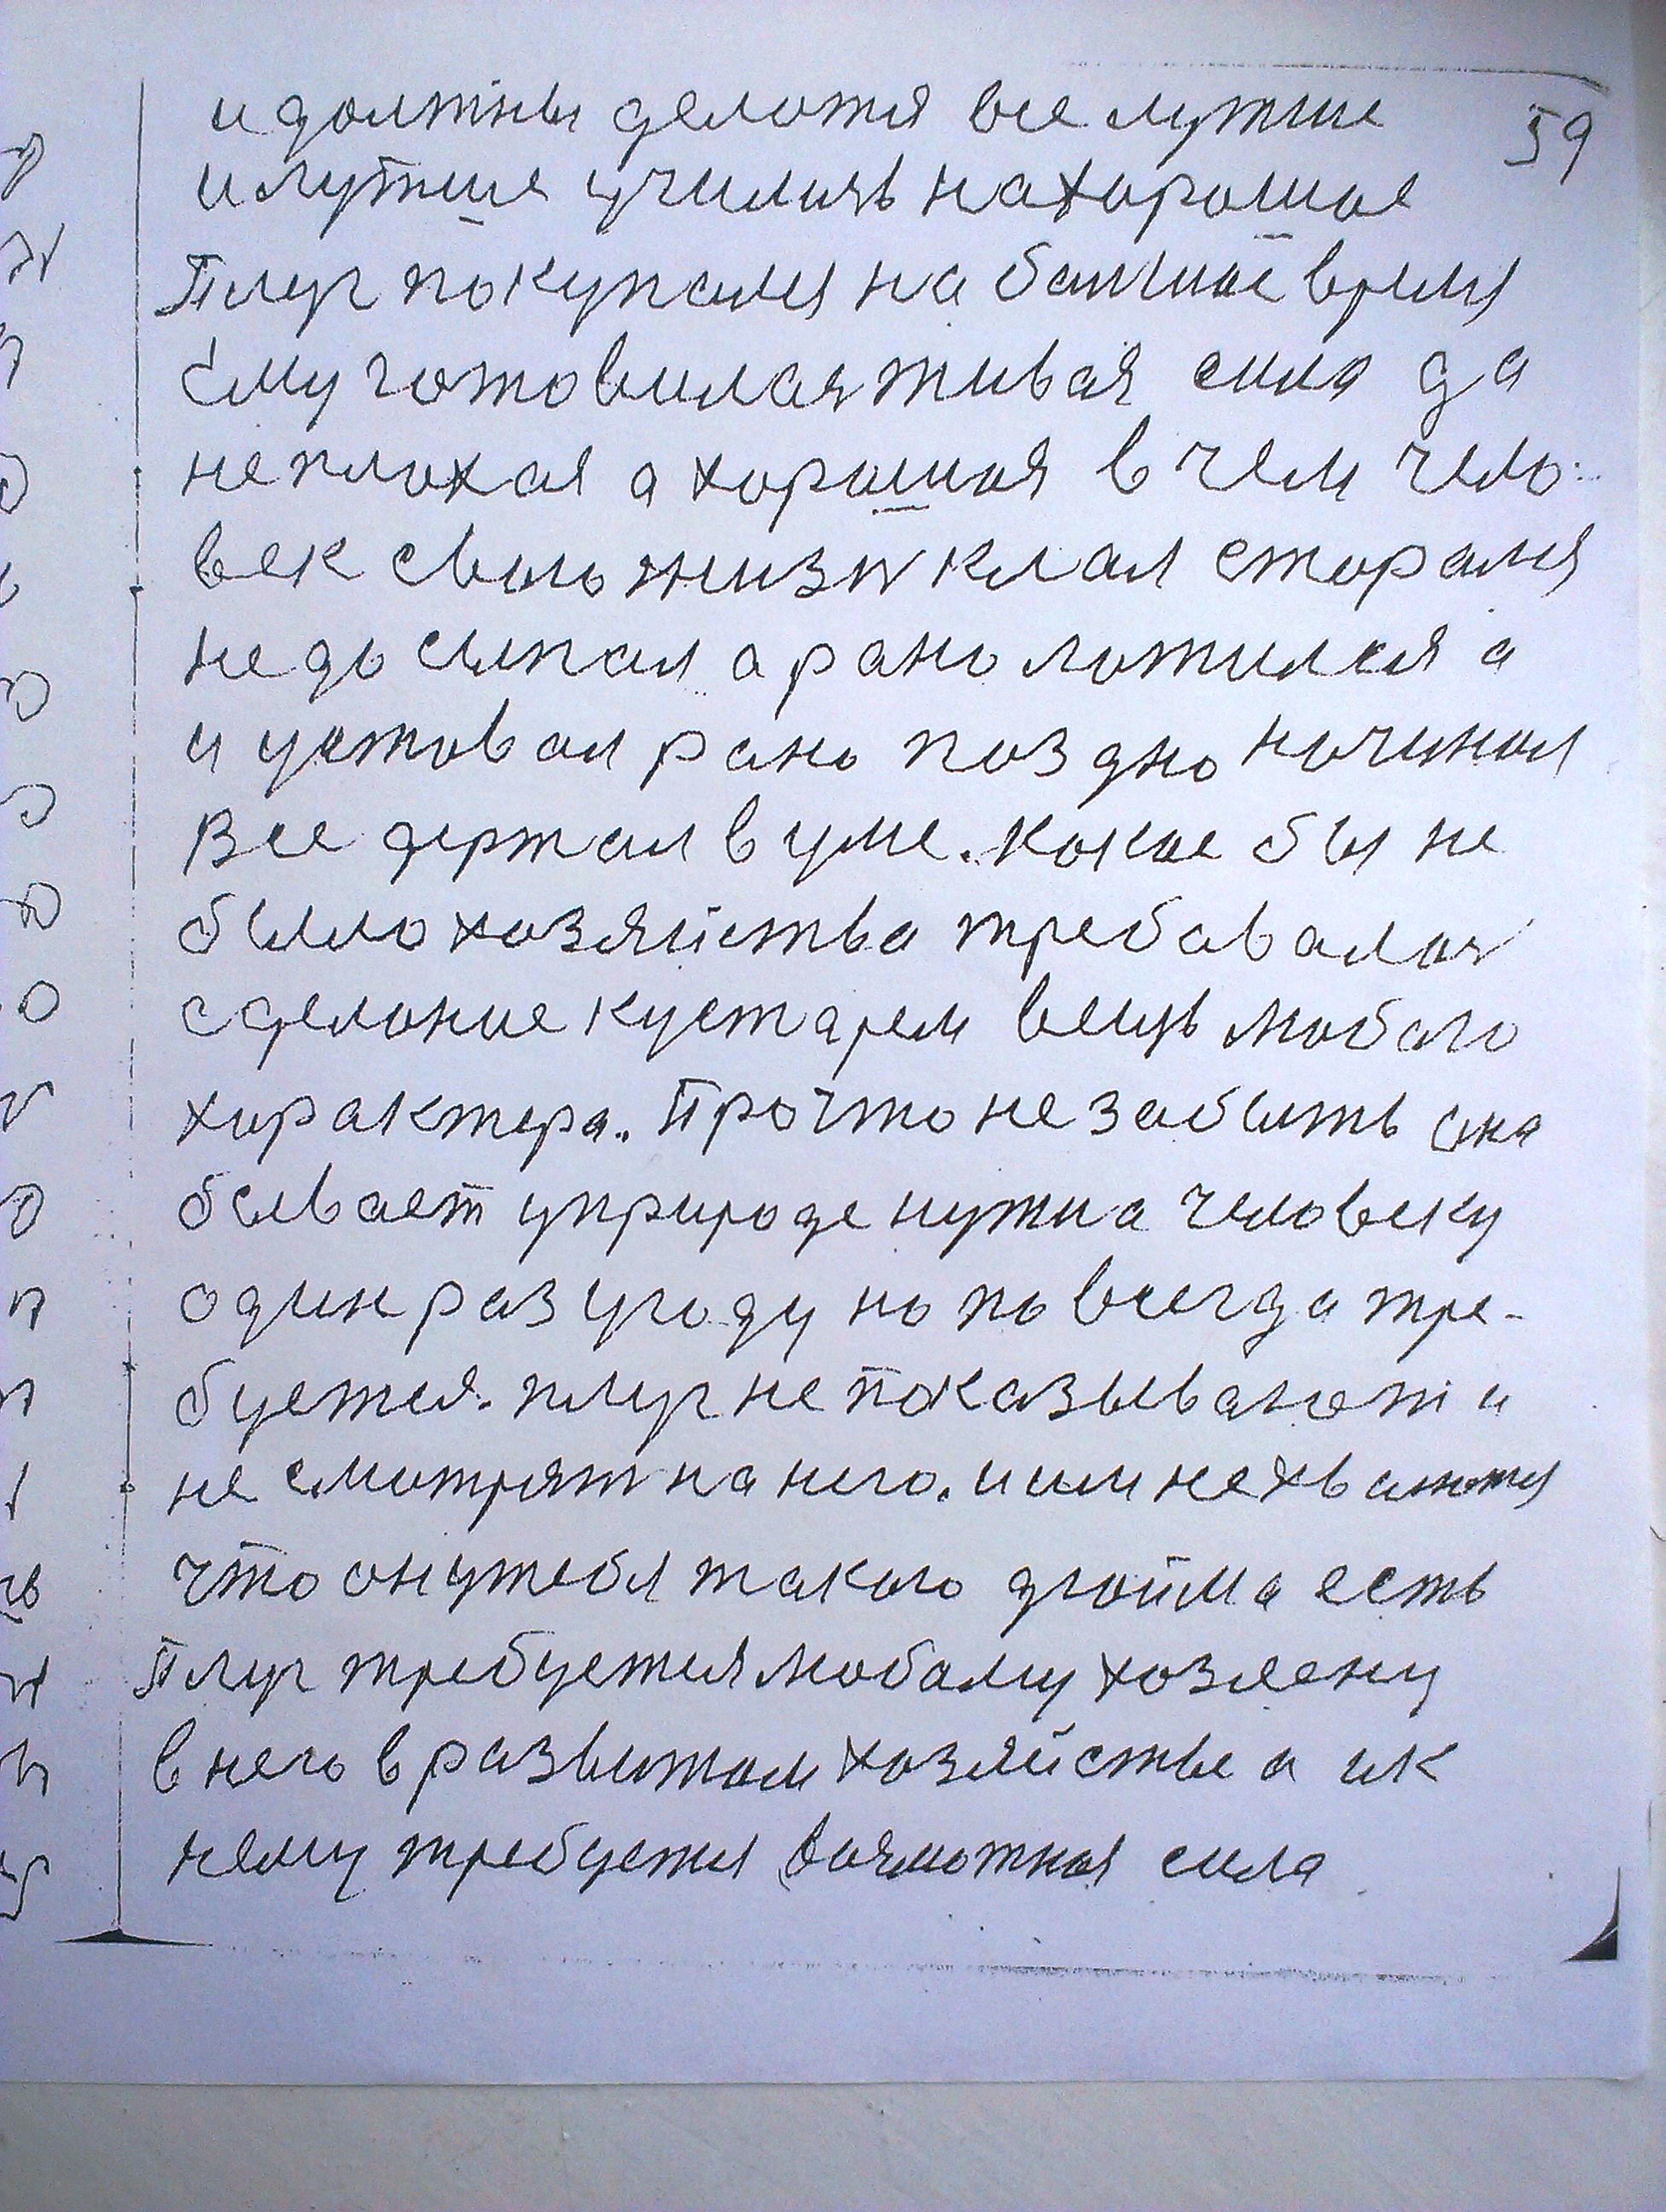 59
и должны делотя все лутше
и лутше училиь на хорошое
Плуг покупался на болшое время
Ему готовилась живая сила да
не плохая а хорошая в чем чело-
век свою жизн клал сторался
не досыпал а рано ложился а
и уставал рано поздно начинал
Все держал в уме. Какое бы не
было хозяйства требавалоя
сделоние кустарем вещь любого
характера. Про что не забыть она
бывает у природе нужна человеку
один раз у году но по всегда тре-
буется. плуг не показывают и
не смотрят на него. и им не хвалются
что он у тебя такого дюйма есть
Плуг требуется любаму хозяену
в него в развитом хозяйстве а и к
нему требуется сила